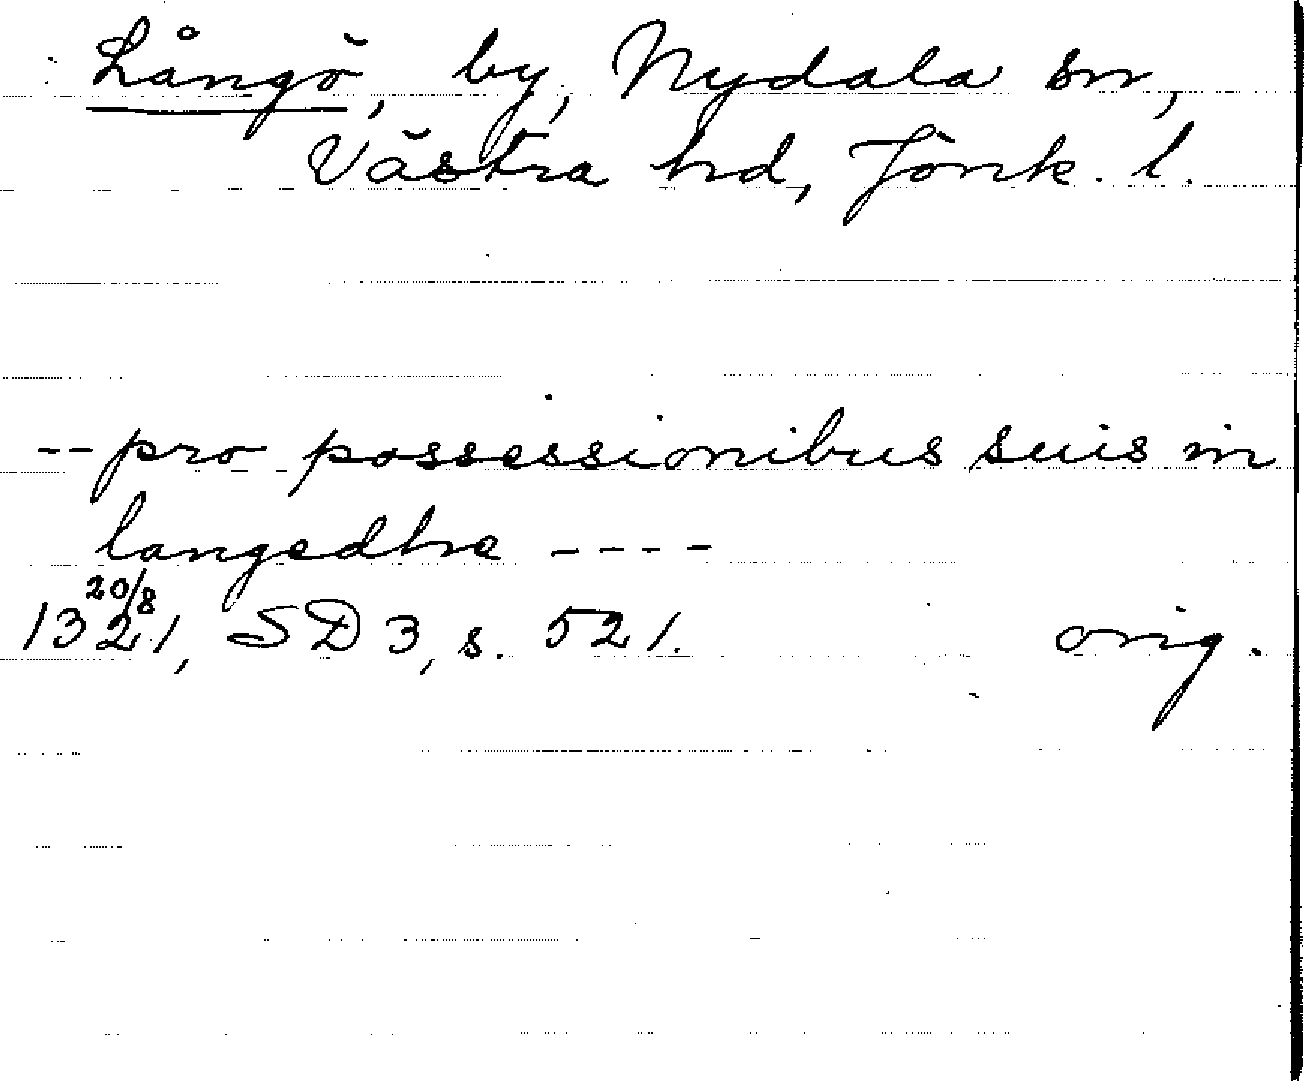 Långö, by, Nydala sn,
Västra hd, Jönk. l.
-- pro possessionibus suis in
langedhre ----
20/8
1321, SD 3, s. 521. orig.